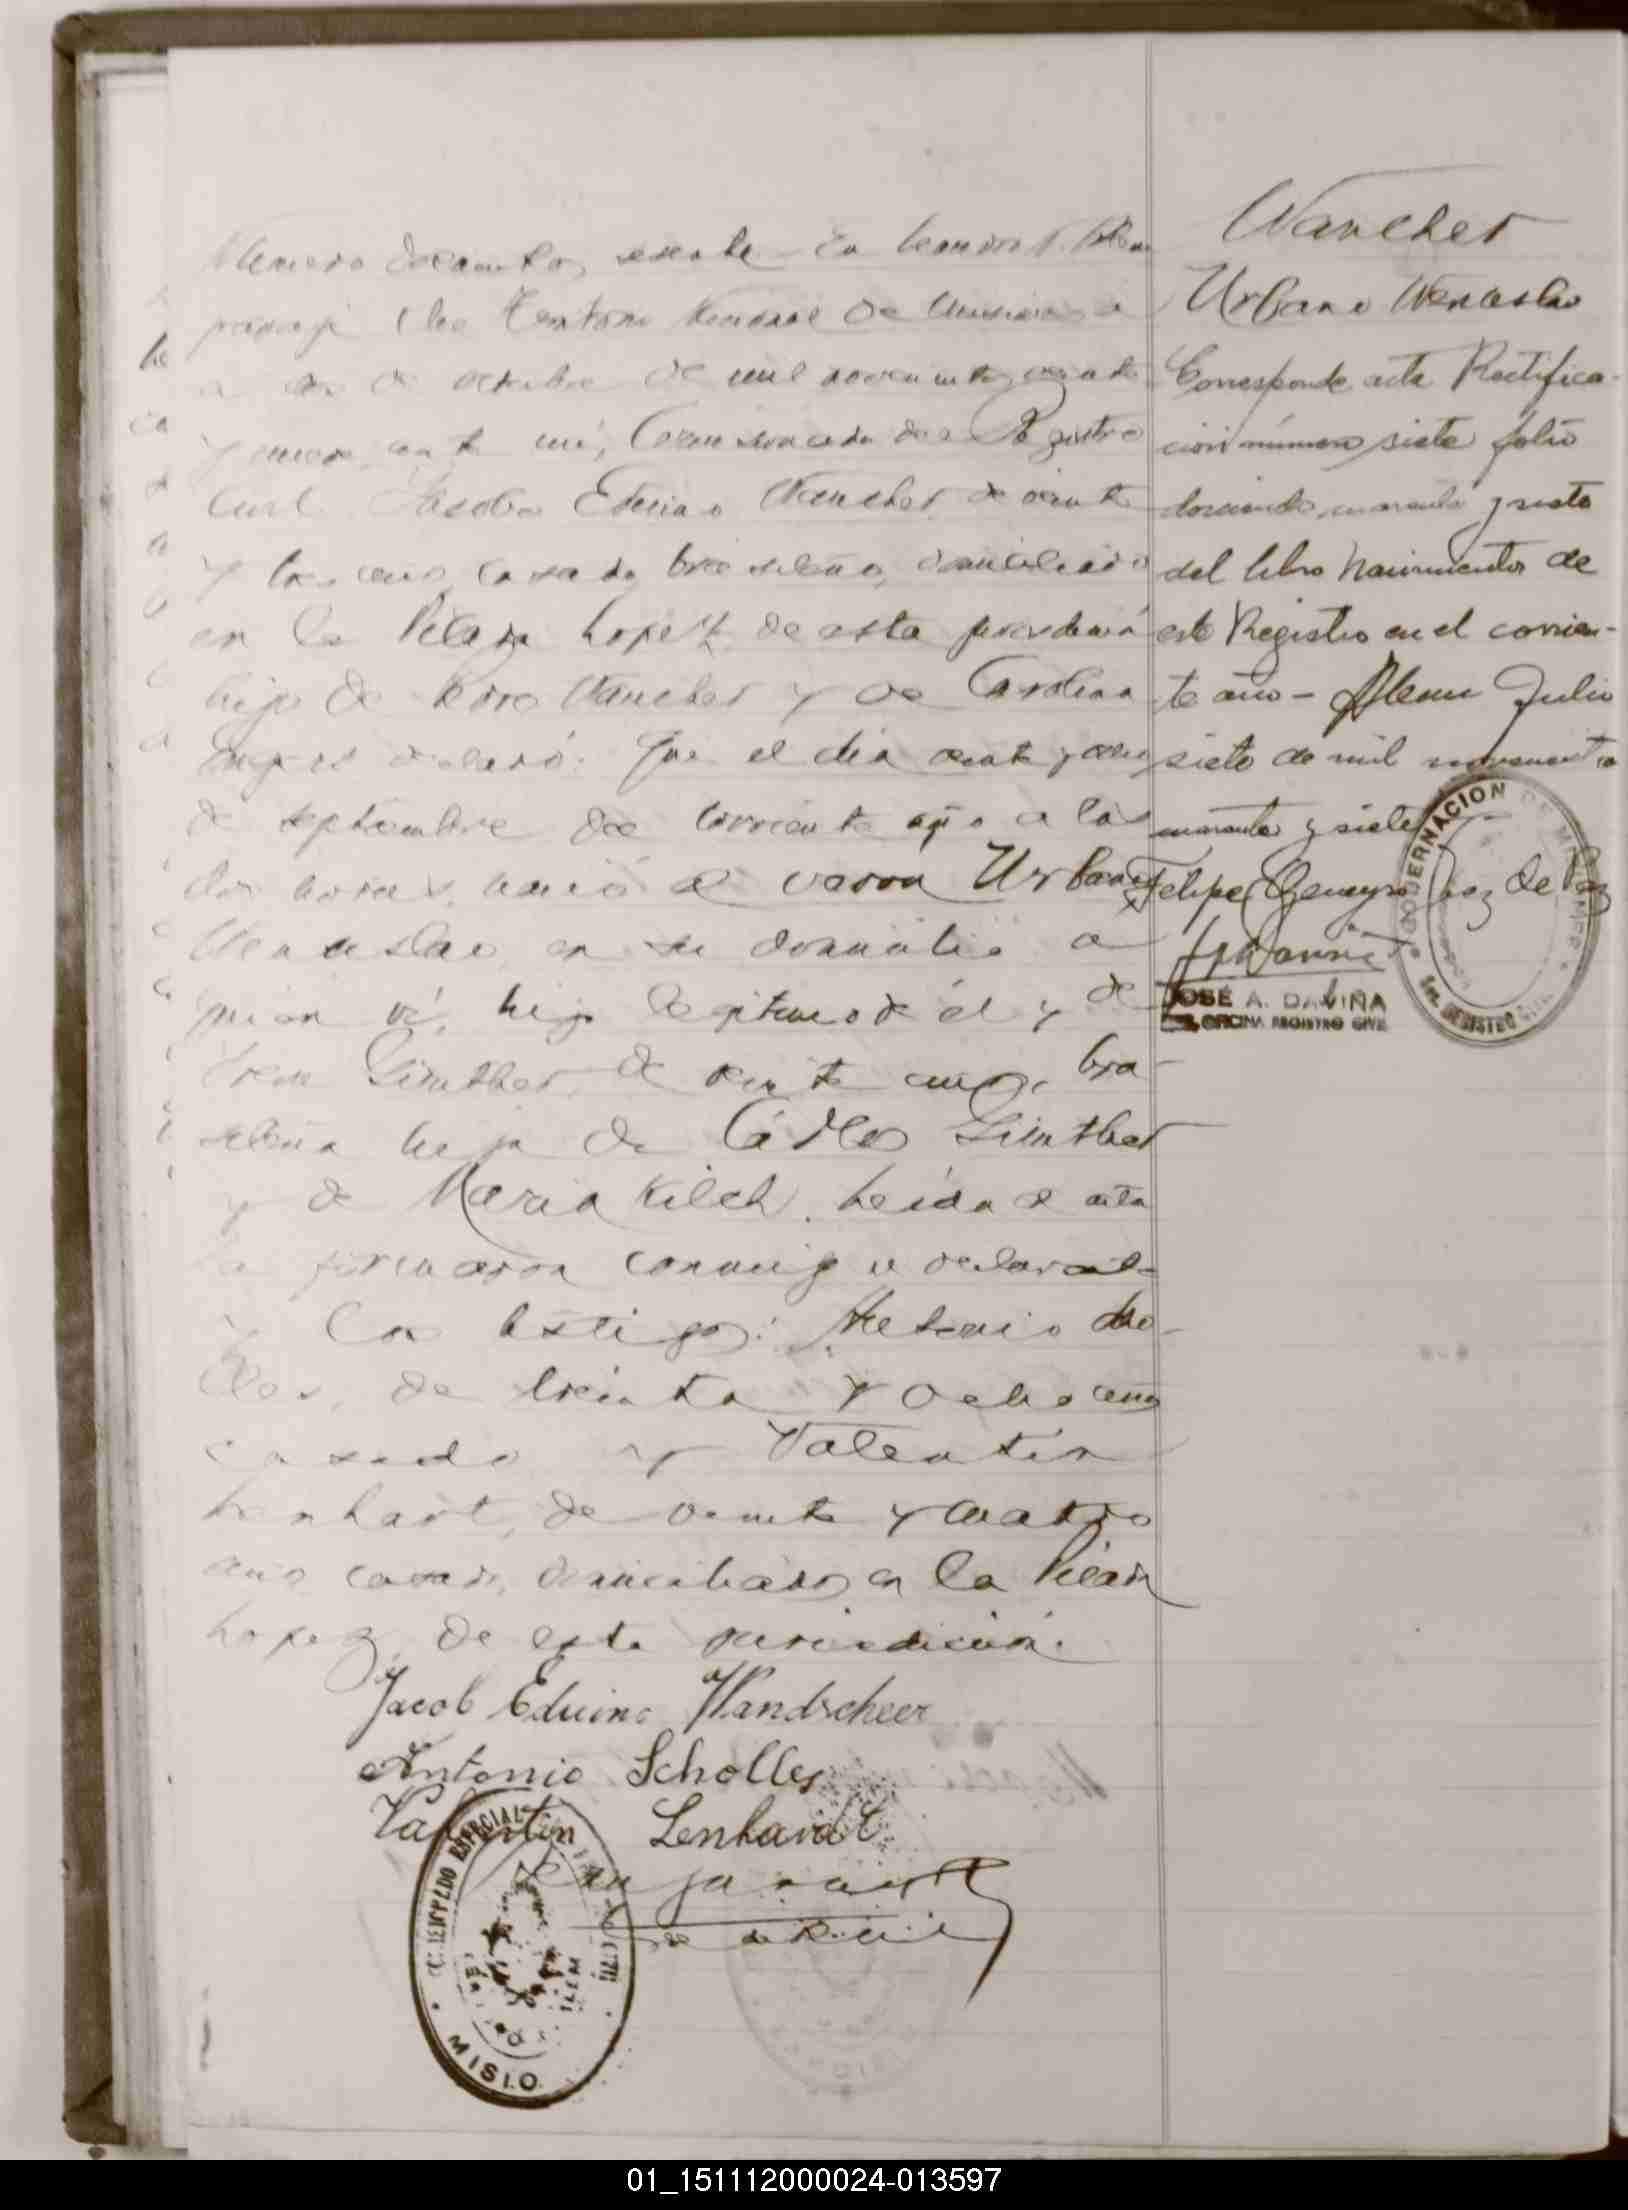 Número doscientos sesenta En Leandro N. Alem
paraje del Territorio Nacional de Misiones a
de octubre de mil novecientos cuarenta
y ante mí, Comisionado del Registro
Civil Jacobo Eduino Wancher, de veinte
y tres años, casado, brasileño, domiciliado
en la Picada Lopez, de esta jurisdicción
hijo de Wancher y de Carolina
declaró: Que el día veinte y
de septiembre del corriente año a las
dos horas, nació el varón Urbano
Wenceslao, en su domicilio a
quien ví, hijo legítimo de él y de
Irene Günther, de veinte años, bra-
sileña hija de Carlos Günther
y de Maria Kilch. Leída el acta
la firmaron conmigo el declarante
y los testigos: Antonio Sho-
lles, de treinta y ocho años
casado y Valentín
Lenhart, de veinte y cuatro
años casado, domiciliados en la Picada
Lopez, de esta jurisdicción.
Jacob Eduino Wandscheer
Antonio Scholles
Valentin Lenhardt
MISIO
Wancher
Urbano Wenceslao
Corresponde acta Rectifica-
ción número siete folio
doscientos cuarenta y siete
del libro Nacimientos de
este Registro en el corrien-
te año - Alem Julio
siete de mil novecientos
cuarenta y siete
Felipe Juez de Paz
JOSÉ A. DAVIÑA
OFICINA REGISTRO CIVIL
GOBERNACION DE MISIONES
REGISTRO CIVIL
01_151112000024-013597